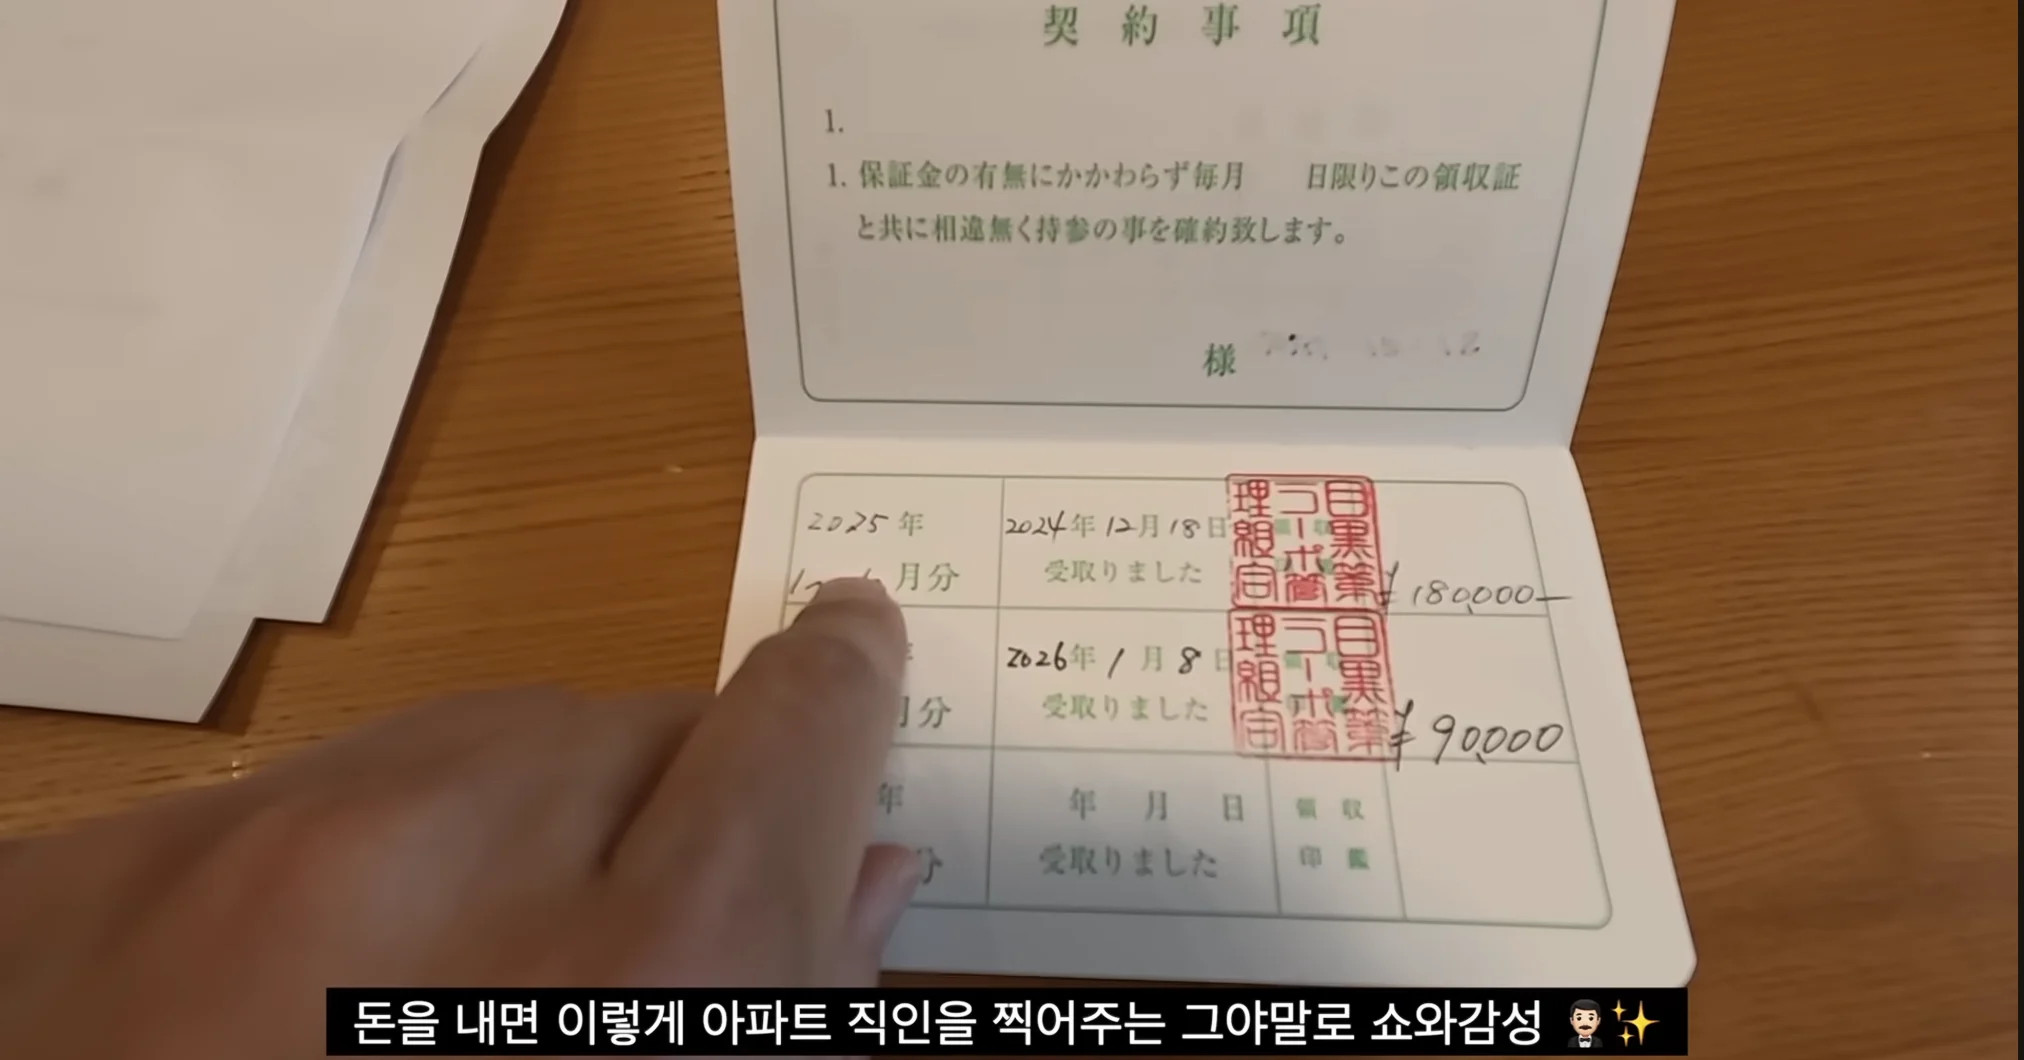 契約事項
1.
1. 保証金の有無にかかわらず毎月 日限りこの領収証
と共に相違無く持参の事を確約致します。
様
2025年
月分
2024年12月18日
受取りました
目黒第
コーポ管
理組合
¥180,000—
月分
2026年1月8日
受取りました
目黒第
コーポ管
理組合
¥90,000
年
分
年 月 日
受取りました
領収
印鑑
돈을 내면 이렇게 아파트 직인을 찍어주는 그야말로 쇼와감성 🤵🏻✨